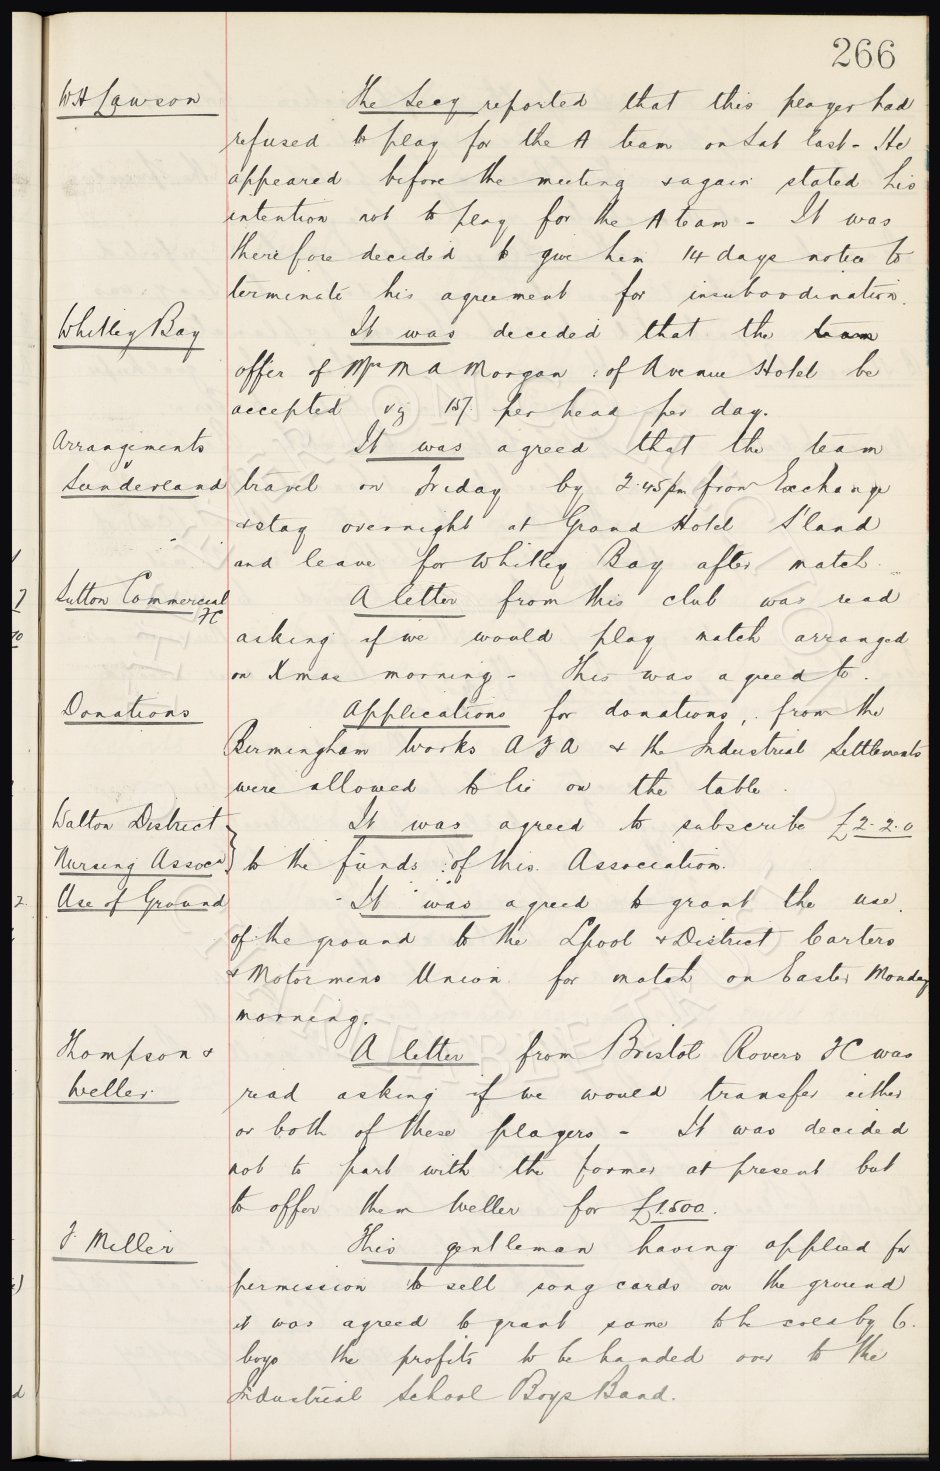 266
W H Lawson The Secy reported that this player had
refused to play for the A team on Sat last - He
appeared before the meeting & again stated his
intention not to play for the A team - It was
therefore decided to give him 14 days notice to
terminate his agreement for insubordination.
Whitley Bay It was decided that the team
offer of Mrs M A Morgan of Avenue Hotel be
accepted viz 15/- per head per day.
Arrangements It was agreed that the team
Sunderland travel on Friday by 2.45 pm from Exchange
& stay overnight at Grand Hotel S'land
and leave for Whitley Bay after match.
Sutton Commercial A letter from this club was read
FC
asking if we would play match arranged
on Xmas morning - This was agreed to.
Donations Applications for donations, from the
Birmingham Works A F A & the Industrial Settlements
were allowed to lie on the table.
Walton District It was agreed to subscribe £2.2.0
Nursing Assocn to the funds of this Association.
Use of Ground It was agreed to grant the use
of the ground to the Lpool & District Carters
& Motormens Union for match on Easter Monday
morning.
Thompson & A letter from Bristol Rovers FC was
Weller. read asking if we would transfer either
or both of these players - It was decided
not to part with the former at present but
to offer them Weller for £1500.
F. Miller This gentleman having applied for
permission to sell song cards on the ground
it was agreed to grant same to be sold by 6
boys the profits to be handed over to the
Industrial School Boys Band.